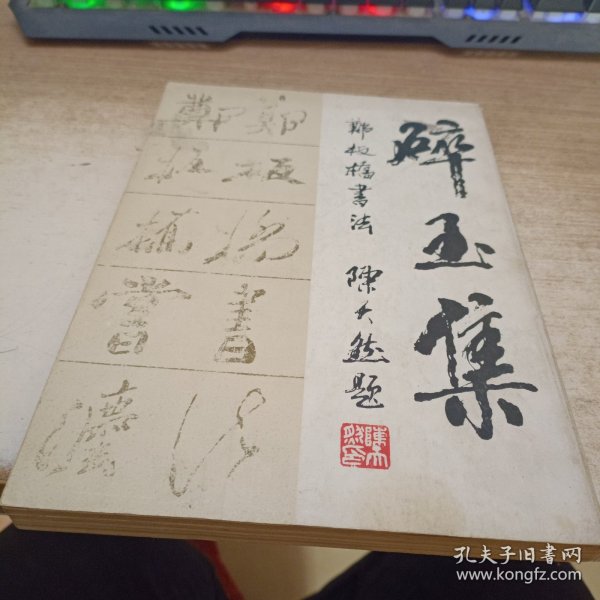 碎玉集
鄭板橋書法 陳天然题
鄭板橋書法
鄭板橋書灋
孔夫子旧书网
www.kongfz.com